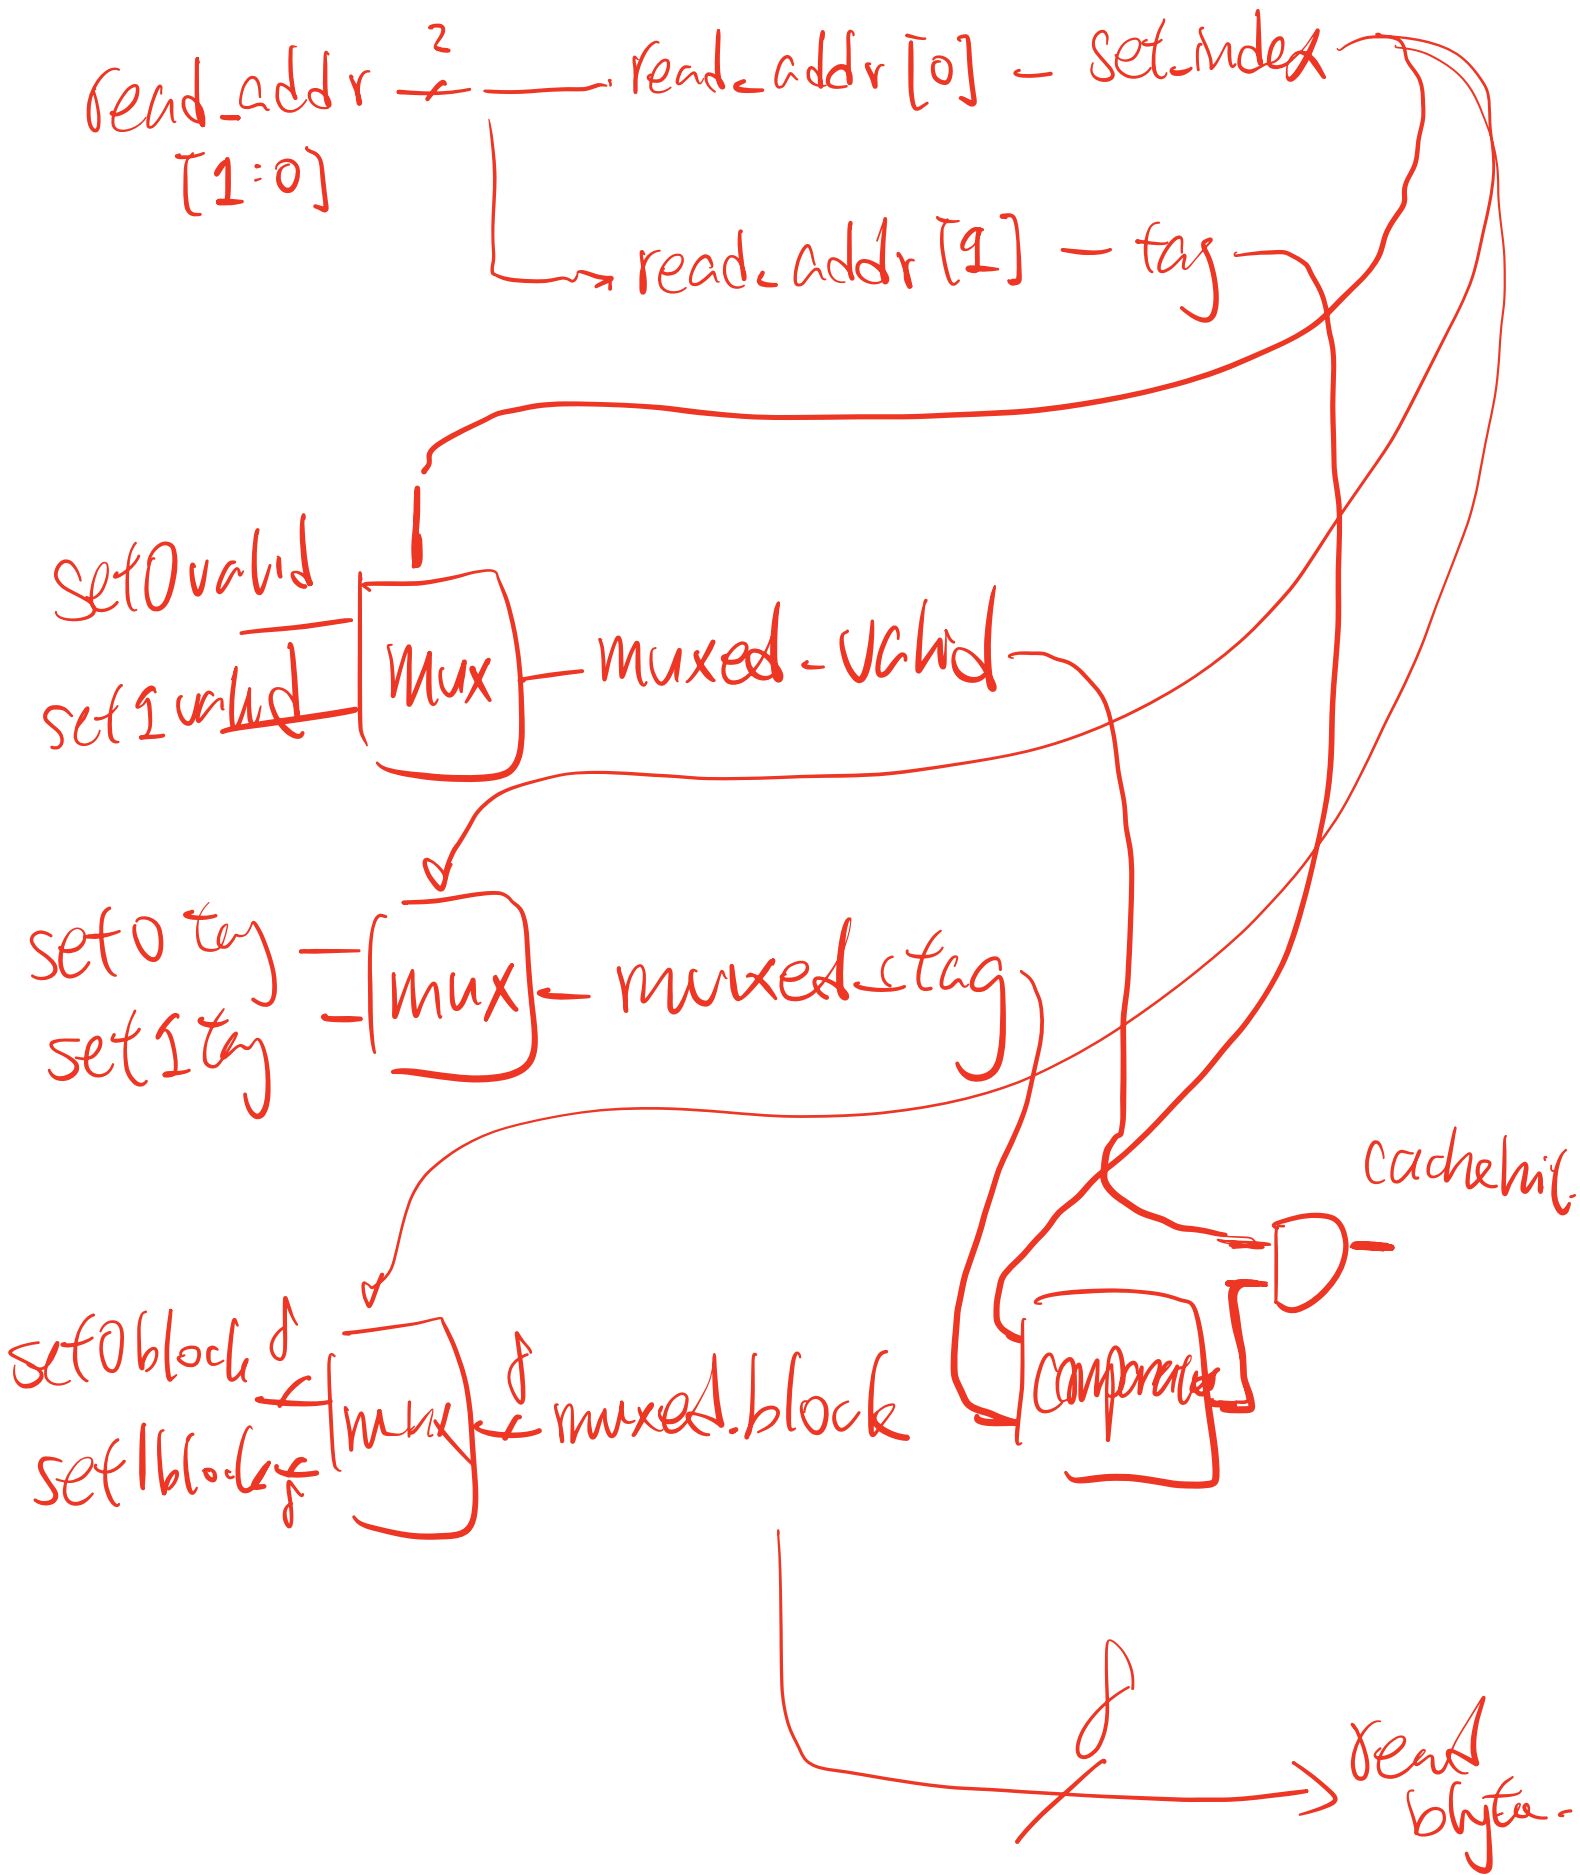 read_addr 2 read_addr [0] - set_index
[1:0]
read_addr [1] - tag
set0valid
set1valid
mux
muxed_valid
set0 tag
set1 tag
mux
muxed_tag
cachehit.
set0block 8
set1block 8
mux
8
muxed_block
comparator
8
read
bhyte.